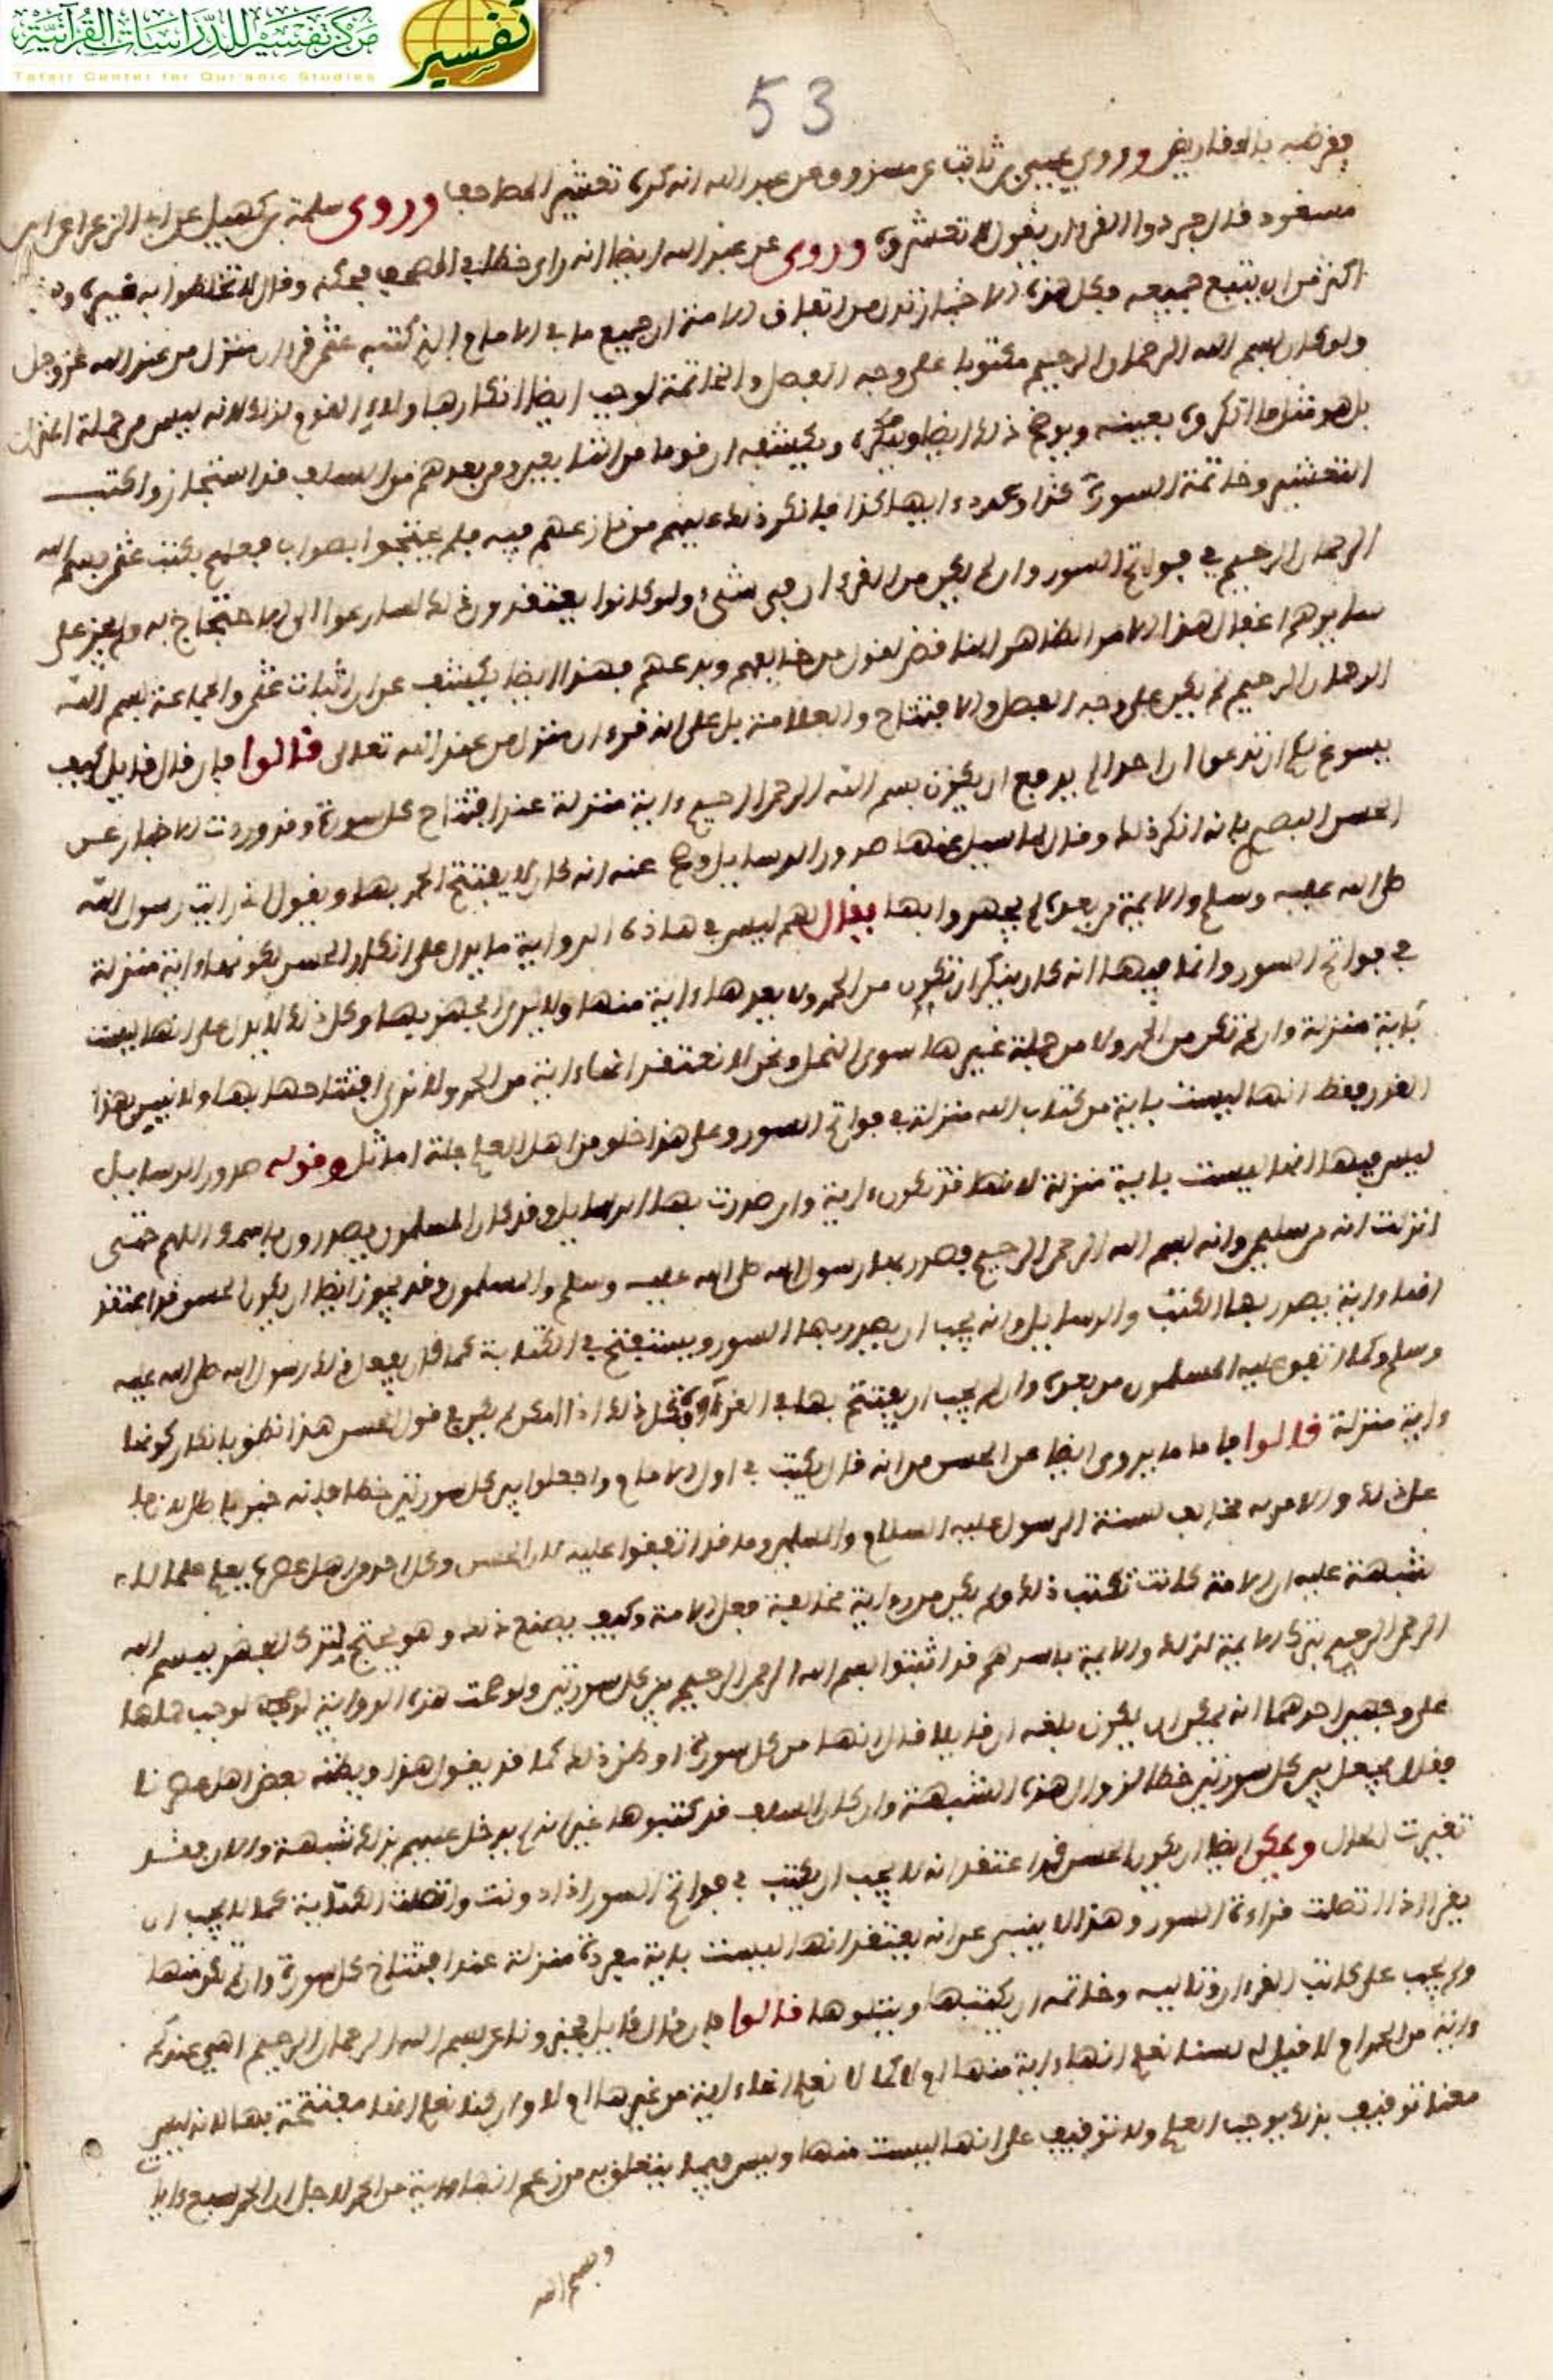 مركز تفسير للدراسات القرآنية
Tafsir Center for Qur'anic Studies
تفسير
53
فقرضه بالمقاريض وروى يحيى بن ثابت عن مسروق عن عبد الله انه كره تعشير المصاحف وروى سلمة بن كهيل عن ابي الزعراء عن ابن
مسعود قال جردوا القرءان يقول لا تعشروه وروى عن عبد الله ايضا انه راى خطا في المصحف فحكه وقال لا تخلطوا به غيره
اكثر من ان يتتبع جميعه وكل هذه الاخبار تدل من اتفاق الامة ان جميع ما في الامام الذي كتبه عثمن قرءان منزل من عند الله عز وجل
ولو كان بسم الله الرحمان الرحيم مكتوبا على وجه الفصل والخاتمة لوجب ايضا انكارها ولاءى القوم لذلك لانه ليس من جملة المنزل
بل هو مثل ما انكروه بعينه ويوضح ذلك ايضا ويكشفه ان قوما من التابعين ومن بعدهم من السلف قد استجازوا كتب
التعشير وخاتمة السورة كذا وعدد ءايها كذا فانكر ذلك عليهم من نازعهم فيه فلم يحتجوا بصواب فعلهم بكتب عثمن بسم الله
الرحمان الرحيم في فواتح السور وان لم يكن من القرءان في شيء ولو كانوا يعتقدون ذلك لسارعوا الى الاحتجاج به ولم يجز على
سايرهم اغفال هذا الامر الظاهر المناقض لقول من خالفهم وبدعهم فهذا ايضا يكشف عن ان اثبات عثمن والجماعة بسم الله
الرحمان الرحيم لم يكن على وجه الفصل والافتتاح والعلامة بل على انه قرءان منزل من عند الله تعالى قالوا فان قال قايل كيف
يسوغ لكم ان تدعوا ان احدا لم يدفع ان يكون بسم الله الرحمن الرحيم ءاية منزلة عند افتتاح كل سورة وقد وردت الاخبار عن
الحسن البصري بانه انكر ذلك وقال لما سيل عنها صدور الرسايل وصح عنه انه كان لا يفتتح الحمد بها ويقول ان رايت رسول الله
صلى الله عليه وسلم والايمة من بعده لم يجهروا بها يقال لهم ليس في هاذه الرواية ما يدل على انكار الحسن لكونها ءاية منزلة
في فواتح السور وانما فيها انه كان ينكر ان تكون من الحمد ولا يعدها ءاية منها ولا يرى الجهر بها وكل ذلك لا يدل على انها ليست
بآية منزلة وان لم تكن من الحمد ولا من جملة غيرها سوى النمل ونحن لا نعتقد انها ءاية من الحمد ولا نرى افتتاحها بها ولا نبين بهذا
القدر فقط انها ليست باية من كتاب الله منزلة في فواتح السور وعلى هذا خلق من اهل العلم جلة اماثل وقوله صدور الرسايل
ليس فيها انها ليست باية منزلة لانها قد تكون ءاية وان صدرت بها الرسايل وقد كان المسلمون يصدرون باسمك اللهم حتى
انزلت انه من سليمن وانه بسم الله الرحمن الرحيم فصدر بها رسول الله صلى الله عليه وسلم والمسلمون وقد يجوز ايضا ان يكون الحسن قد اعتقد
انها ءاية يصدر بها الكتب والرسايل وانه يجب ان يصدر بها السور ويستفتح في الكتابة كما قد فعل ذلك رسول الله صلى الله عليه
وسلم وكما اتفق عليه المسلمون من بعده وان لم يجب ان يفتتح بها في القراءة وكل ذلك اذا امكن لم يكن في قول الحسن هذا نطق بانكار كونها
ءاية منزلة قالوا فاما ما يروى ايضا عن الحسن من انه قال يكتب في اول الامام واجعلوا بين كل سورتين خطا فانه خبر باطل لا
على ذلك والامر به مخالف لسنة الرسول عليه السلام والسلف وما قد اتفقوا عليه لان الحسن وكل احد من اهل عصره يعلم علما لا
شبهة عليه ان الامة كانت تكتب ذلك ولم يكن من رواية مخالفة فعل الامة وكيف يصنع ذلك وهو يحتج لترك الجهر ببسم الله
الرحمن الرحيم بترك الايمة لذلك والايمة باسرهم قد اثبتوا بسم الله الرحمن الرحيم بين كل سورتين ولو صحت هذه الرواية لوجب حملها
على وجهين احدهما انه يمكن ان يكون بلغه ان قايلا قال انها من كل سورة او ظن ذلك كما قد يقول هذا ويظنه بعض اهل عصرنا
فقال يجعل بين كل سورتين خطا لزوال هذه الشبهة وان كان السلف قد كتبوها غير انه لم يدخل عليهم بذلك شبهة والان فقد
تغيرت الحال ويمكن ايضا ان يكون الحسن قد اعتقد انه لا يجب ان يكتب في فواتح السور اذا دونت واتصلت الكتابة كما لا يجب ان
يقرا اذا اتصلت قراءة السور وهذا لا ينبي عن انه يعتقد انها ليست باية مفردة منزلة عند افتتاح كل سورة وان لم تكن منها
ولم يجب على كاتب القرءان وتاليه وخاتمه ان يكتبها ويتلوها قالوا فان قال قايل فخبرونا عن بسم الله الرحمان الرحيم اهي عندكم
ءاية من الحمد ام لا قيل له لسنا نعلم انها ءاية منها ام لا كما لا نعلم انها ءاية من غيرها ام لا وان كنا نعلم انها مفتتحة بها لانه ليس
معنا توقيف بذلك يوجب العلم ولا توقيف على انها ليست منها وليس فيما يتعلق به من زعم انها ءاية من الحمد لاجل ان الحمد سبع ءايا
وبسم الله